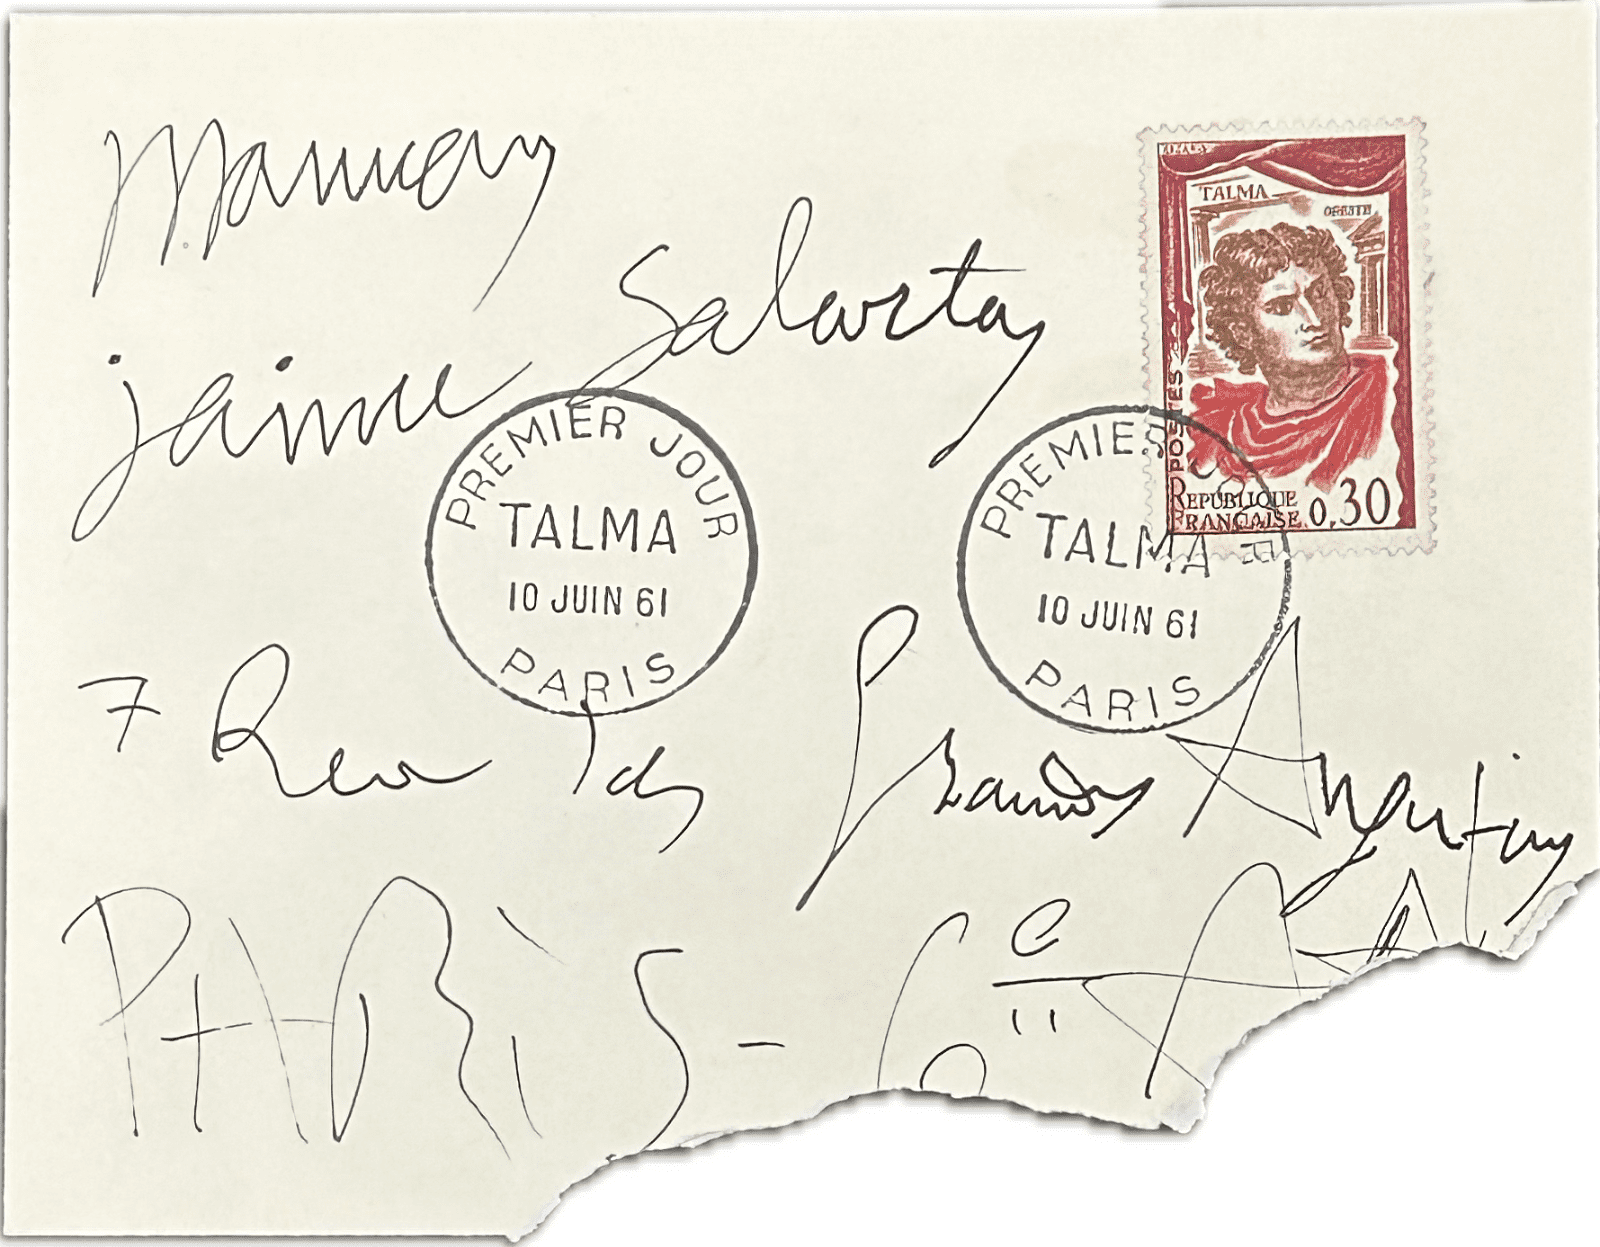 Monsieur
jaime Sabartes
7 Rue des Grands Augustins
PARiS - 6e
PREMIER JOUR
TALMA
10 JUIN 61
PARIS
PREMIER JOUR
TALMA
10 JUIN 61
PARIS
TALMA
ORESTE
POSTES
REPUBLIQUE
FRANÇAISE 0,30